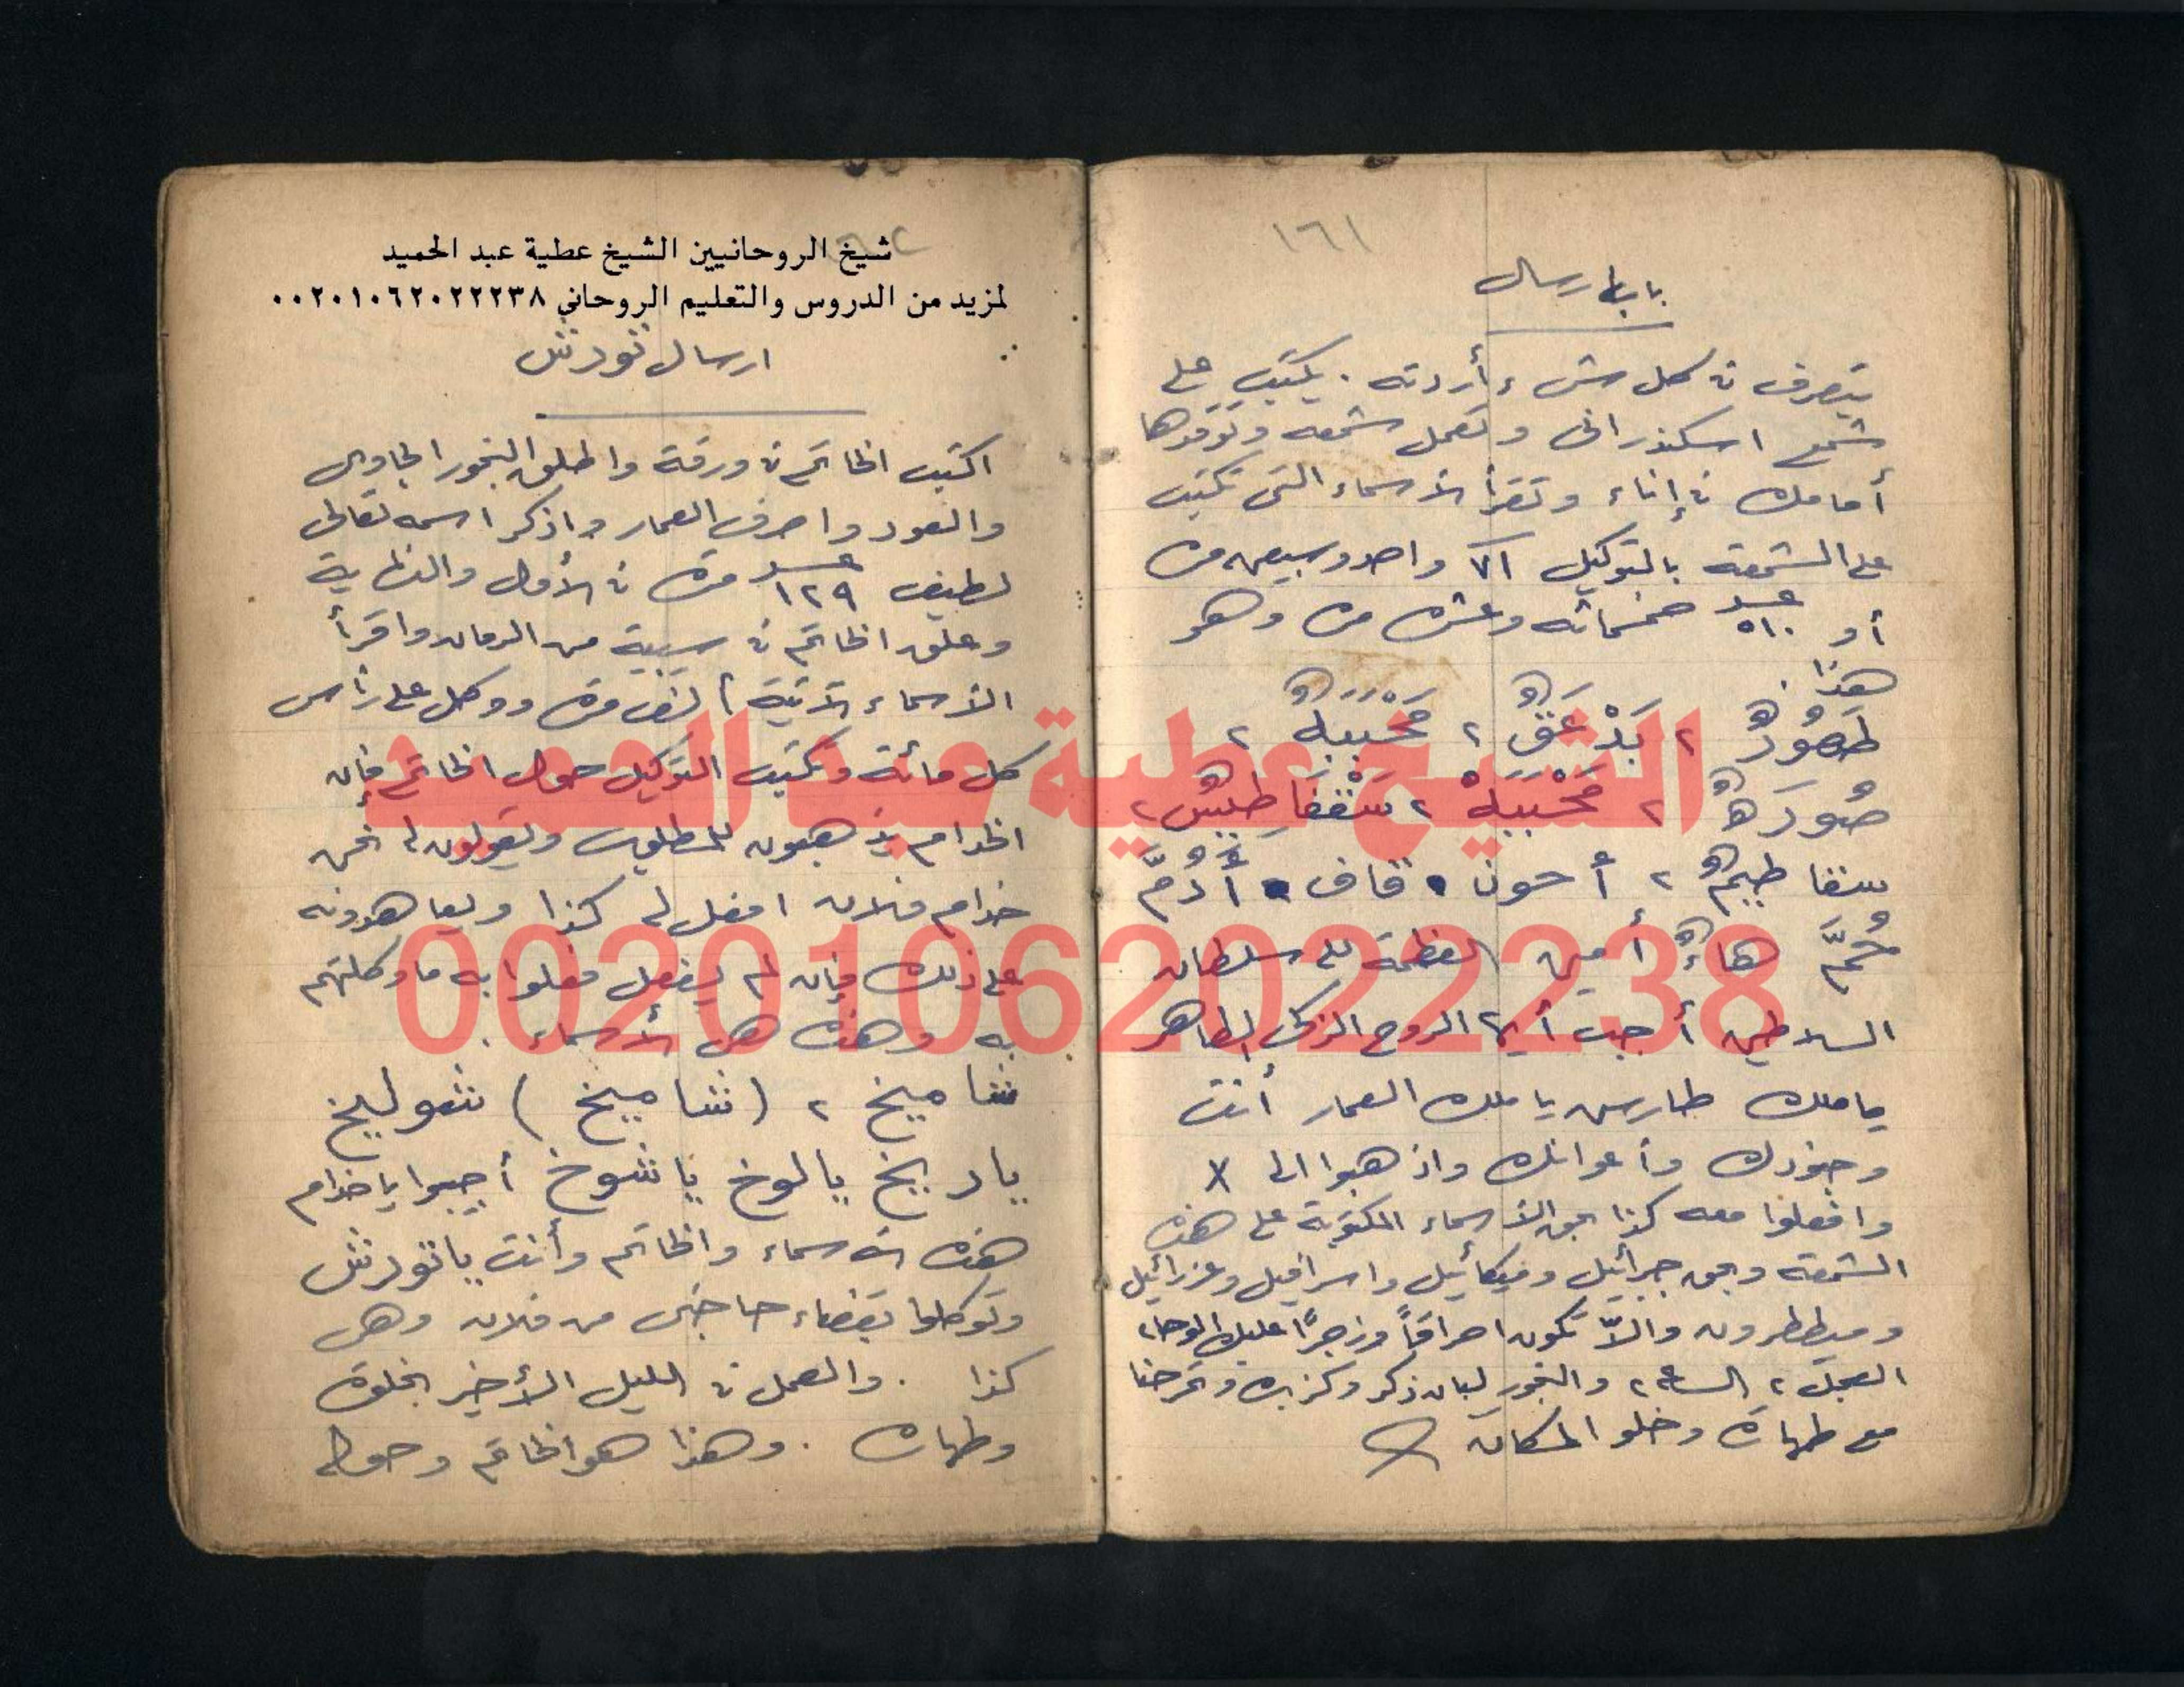 ١٦١
باب ارسال
يتصرف في كل شيء أردته . يكتب على
شمع اسكندرانى وتعمل شمعه وتوقدها
أمامك في إناء وتقرأ الأسماء التى تكتب
على الشمعه بالتوكيل ٧١ واحد وسبعين مره
أو عدد ٥١٠ خمسمائه وعشره مره وهو
هذا
طَهُورٌ ٢ بَدْعَقٌ ٢ مَحْبَبَهٌ ٢
صُورَهٌ ٢ مَحْبَبَهْ ٢ سَقفَاطِيسٌ ٢
سقاطيمٌ ٢ أحون • قاف • أُدُمَّ
حُمَّ هاءٌ أمين العظمة لله سلطان
السلاطين أجب أيها الروح الزكى الطاهر
ياملك طارس يا ملك العمار أنت
وجنودك وأعوانك واذهبوا الى X
وافعلوا معه كذا بحق الأسماء المكتوبة على هذه
الشمعه وبحق جبرائيل وميكائيل واسرافيل وعزرائيل
وميططرون والاّ تكون احراقاً وزجرًا عليك الوحا٢
العجل ٢ الساعه ٢ والبخور لبان ذكر وكزبره
مع طهارة وخلو المكان
شيخ الروحانيين الشيخ عطية عبد الحميد
لمزيد من الدروس والتعليم الروحاني ٠٠٢٠١٠٦٢٠٢٢٢٣٨
ارسال تورش
اكتب الخاتم في ورقة واطلق البخور الجاوى
والعود واصرف العمار واذكر اسمه تعالى
لطيف عدد ١٢٩ مرة في الأول والنهاية
وعلق الخاتم في سيبية من الرمان واقرأ
الأسماء الآتية ألف مرة ووكل على رأس
كل مائة وتكتب التوكيل حول الخاتم فإن
الخدام يذهبون للمطلوب ويقولون له نحن
خدام فلان افعل له كذا ويعاهدونه
على ذلك فإن لم يفعل فعلوا به ما وكلتهم
به وهذه هى الأسماء .
شاميخ ٢ (شاميخ) شوليخ
ياريخ يالوخ ياشوخ أجيبوا ياخدام
هذه الأسماء والخاتم وأنت ياتورش
وتوكلوا بقضاء حاجتى من فلان وهى
كذا . والعمل في الليل الأخير بخلوة
وطهارة . وهذا هو الخاتم وحوله
الشيخ عطية عبد الحميد
00201062022238